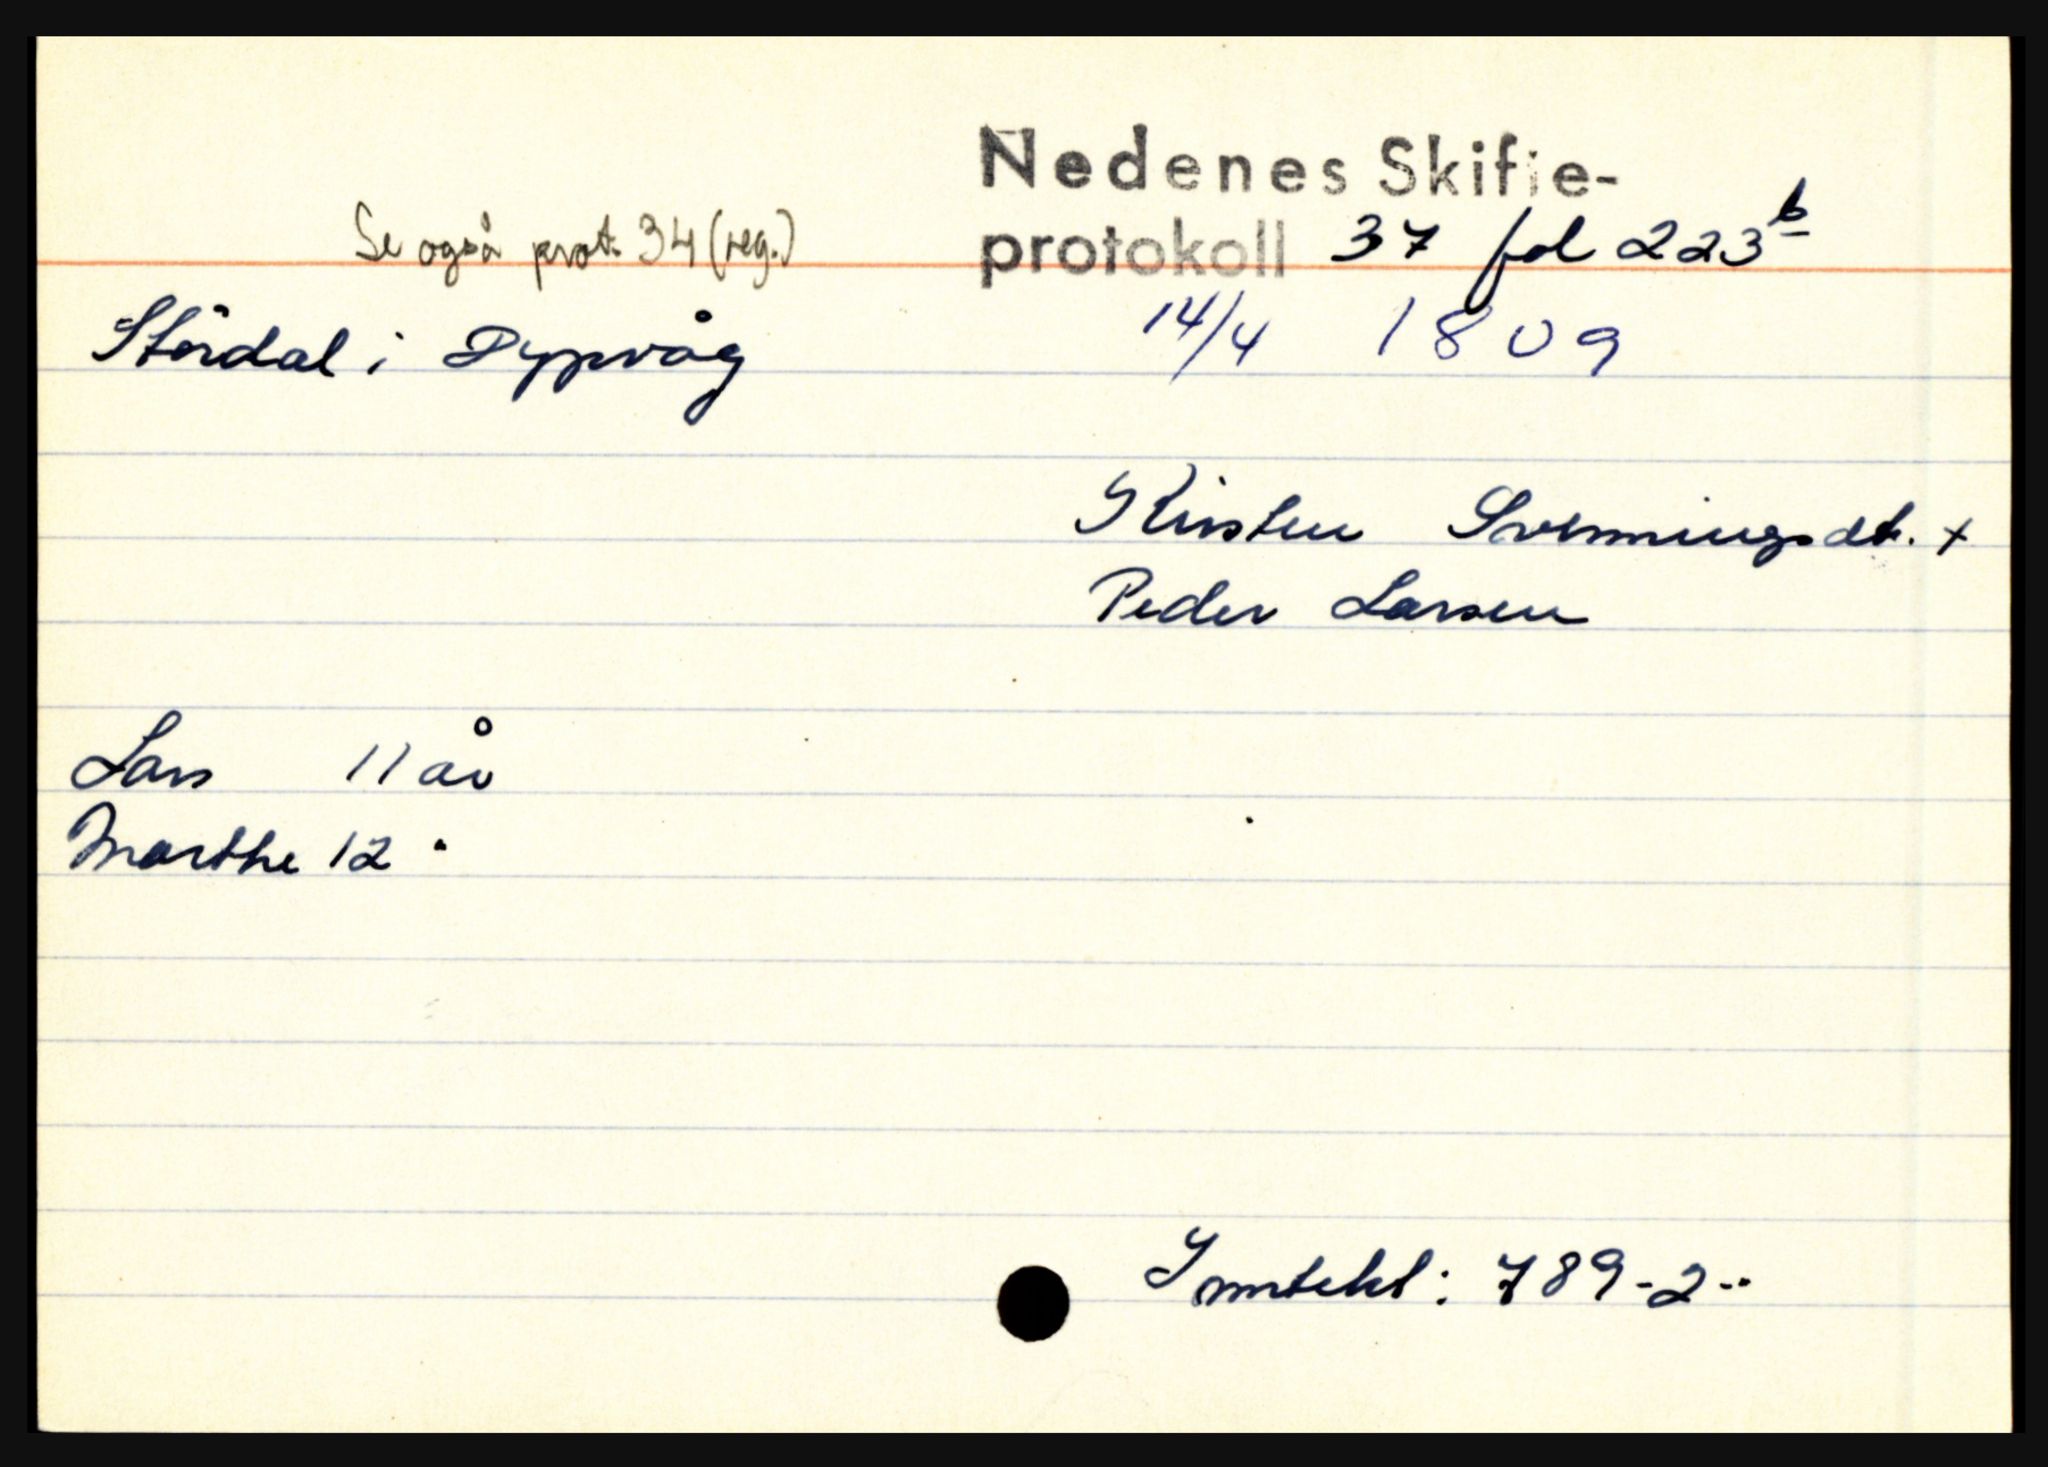 Nedenes Skifte-
Se også prot. 34 (reg.)
protokoll 37 fol 223b
Stordal i Dypvåg
14/4 1809
Kirsten Svenningsdt. +
Peder Larsen
Lars 11 år
Marthe 12 "
Inntekt: 789-2-"